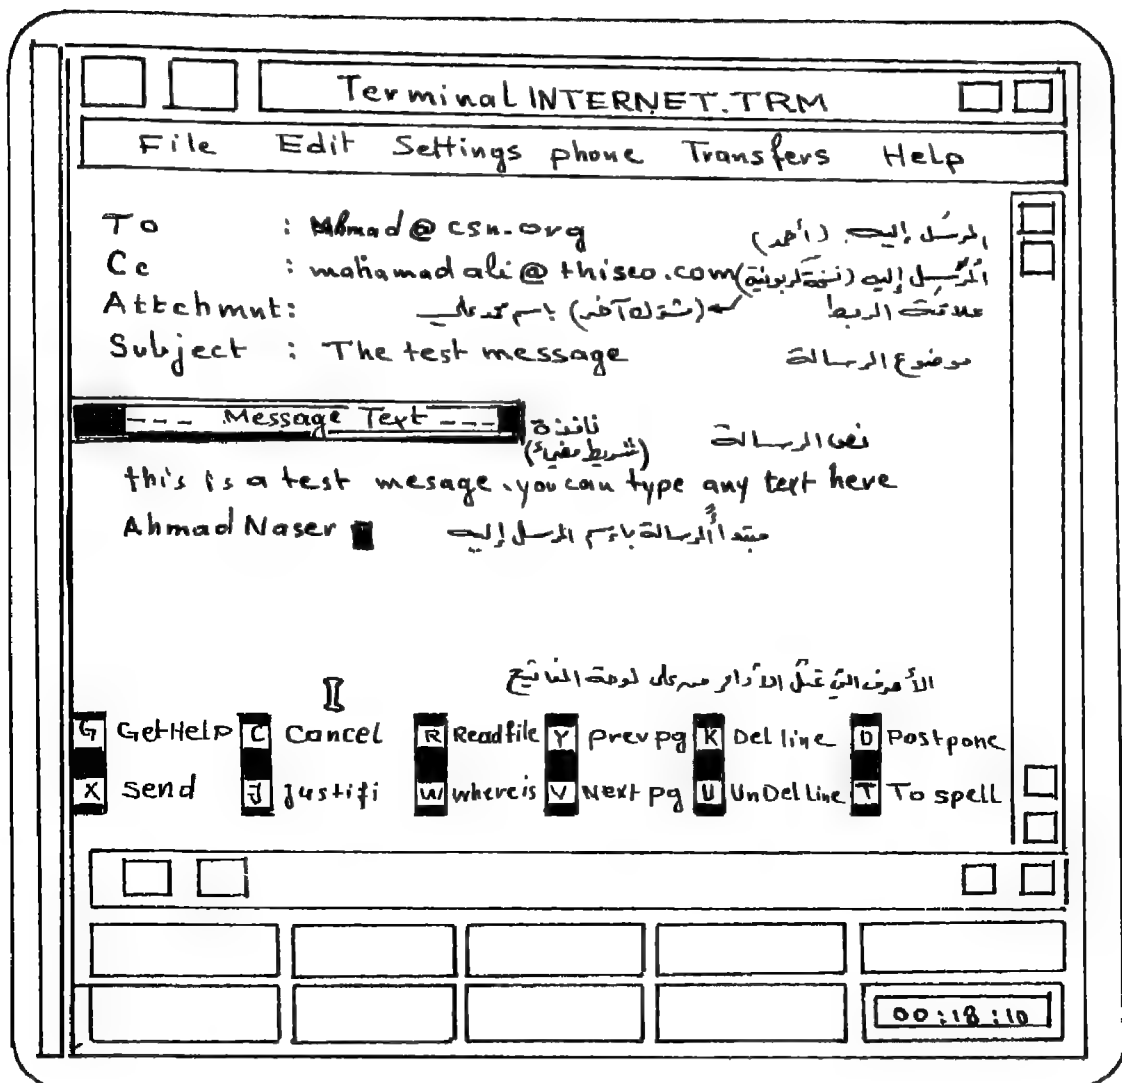 Terminal INTERNET.TRM
File Edit Settings phone Transfers Help
To : Ahmad@csn.org المرسَل إليه (أحمد)
Cc : mohamad ali@thiseo.com المُرسَل إليه (نسخة كربونية)
Attchmnt: (مشترك آخر) باسم محمد علي علاقة الربط
Subject : The test message موضوع الرسالة
--- Message Text --- نافذة نص الرسالة
(شريط مضيء)
this is a test mesage. you can type any text here
Ahmad Naser مبتدأ الرسالة باسم المرسل إليه
الأحرف التي تمثل الأوامر من على لوحة المفاتيح
G GetHelp C Cancel R Readfile Y prev pg K Del line O Postpone
X Send J Justifi W whereis V Next pg U UnDel Line T To spell
00:18:10